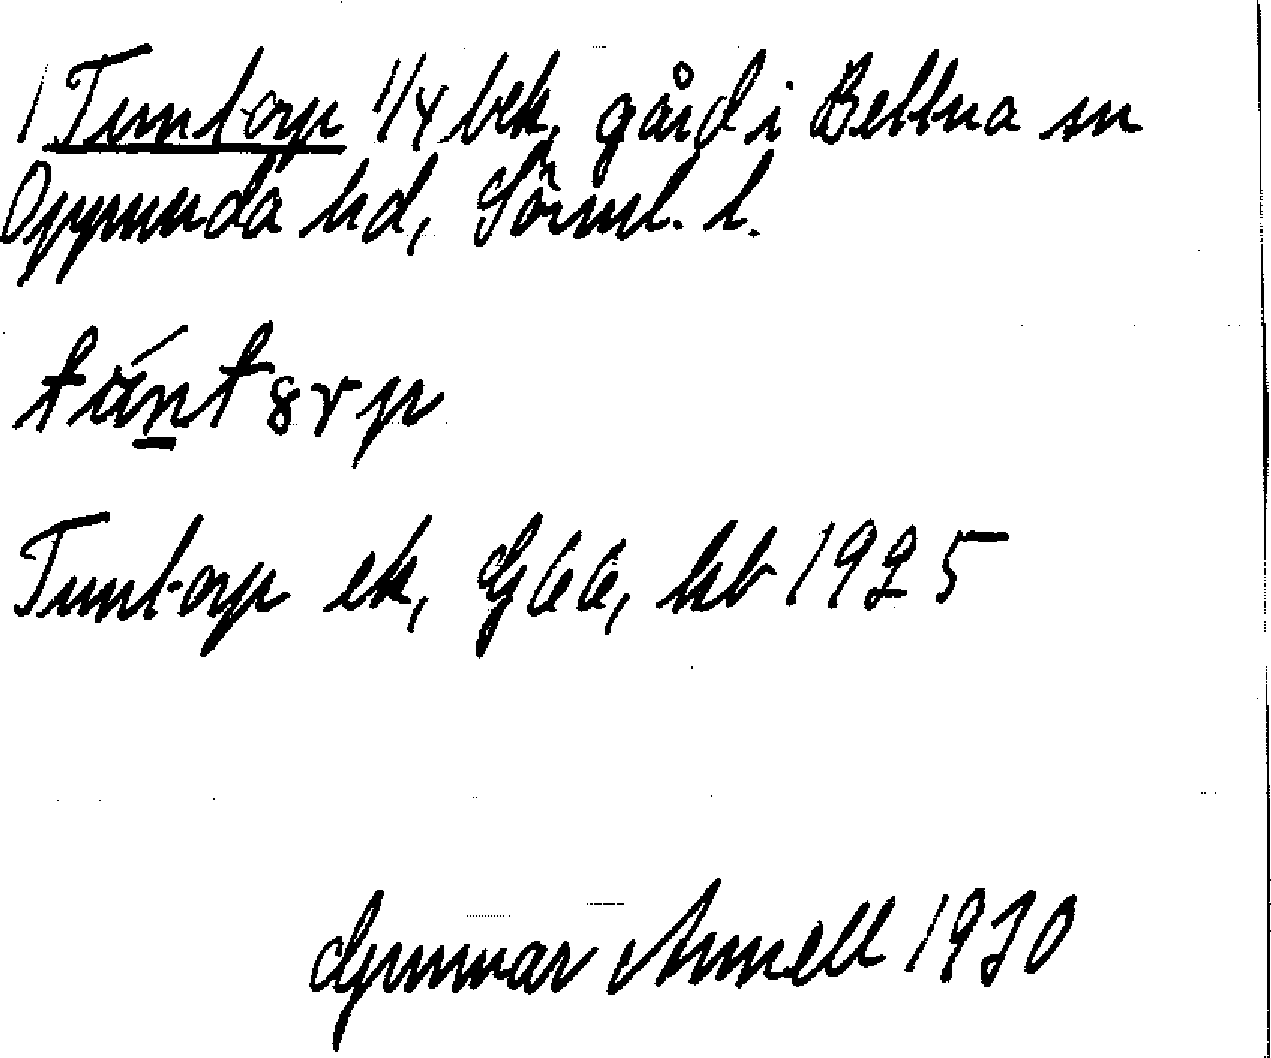 1 Tuntorp 1/4 bek, gård i Bettna sn
Oppunda hd, Sörml. l.
tv́ntorp
Tuntorp ek, G66, hb 1925
Gunnar Arnell 1930